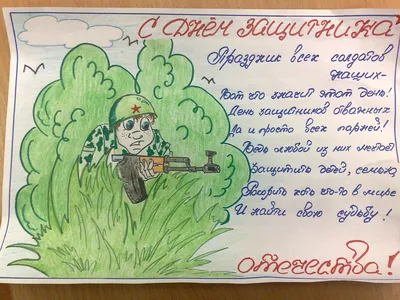 С ДНЁМ ЗАЩИТНИКА
Праздник всех солдатов
наших -
Вот что значит этот день!
День защитников отважных
Да и просто всех парней!
Ведь любой из них мечтает
Защитить детей, семью,
Покорить хоть что-то в мире
И найти свою судьбу!
Отечества!